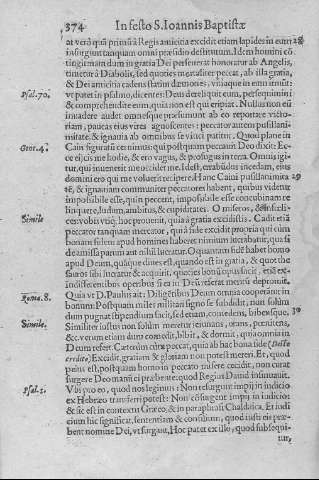 374 In festo S. Ioannis Baptistæ
at verò quã primũ à Regis amicitia excidit etiam lapides in eum 28
insurgunt tanquam omni præsidio destitutum. Idem homini cõ
tingit nam dum in gratia Dei perseverat honoratur ab Angelis,
timetur à Diabolis, sed quoties mortaliter peccat, ab illa gratia,
& Dei amicitia cadens statim dæmones, vitiaque in eum
Psal. 70. ut patet in psalmo, dicentes: Deus dereliquit eum, persequimini
& comprehendite eum, quia non est qui eripiat. Nullus non eũ
invadere audet omnesque præsumunt ab eo reportare victo-
riam, paucas eius vires agnoscentes: peccator autem pusillani-
mitate & ignavia ab omnibus se vinci patitur. Quod plane in
Genes. 4. Cain figuratũ cernimus: qui postquam peccavit Deo dixit: Ec-
ce eijcis me hodie, & ero vagus, & profugus in terra. Omnis igi-
tur, qui invenerit me occidet me.
domini
& ignaviam communiter peccatores habent, quibus videtur
impossibile esse, quin peccent, impossibile esse concubinam re
linquere, ludum, ambitus, & cupiditates. O miseros, & infœli-
Simile ces: vobis vtiq; hoc provenit, quia à gratia excidistis. Cadit etiã
peccator tanquam mercator, quia fide excidit propria qui cùm
bonam fidem apud homines haberet nimium lucrabatur, qua si
de amissa parum aut nihil lucratur. O quantam fidẽ habet homo
apud Deum, quãque dives est, quando est in gratia, & quot the
sauros sibi lucratur & acquirit, quoties bonũ opus facit, etiã ex
indifferentibus operibus si ea in Deũ referat meretur
Roma. 8. Quia ut D. Paulus ait: Diligẽtibus Deum omnia cooperãtur in
bonum: Postquam miles militari signo se subdidit, non solũm
dum pugnat stipendium facit, sed etiam, comedens, bibensque, 30
Simile. Similiter iustus non solũm meretur ieiunans, orans, pœnitens,
&c. verum etiam dum comedit, bibit, & dormit, quia omnia in
Deum refert. Cæterùm cùm peccat, quia ab hac bona fide
excidit, gratiam & gloriam non potest mereri. Et, quod
peius est, postquam homo in peccato misere cecidit, non curat
surgere Deo manũ ei præbente: quod Regius David insinuavit.
Psal. 1. Vbi pro eo, quod nos legimus: Non resurgunt impij in iudicio
ex Hebræo transferri potest: Non cõsurgent impij in iudicio:
& sic est in contextu Græco, & in paraphrasi Chaldaica. Et iudi
cium hic significat, sententiam & consilium, quod iusti eis præ-
bent nomine Dei, ut surgant. Hoc patet ex illo, quod subsequi
tur,